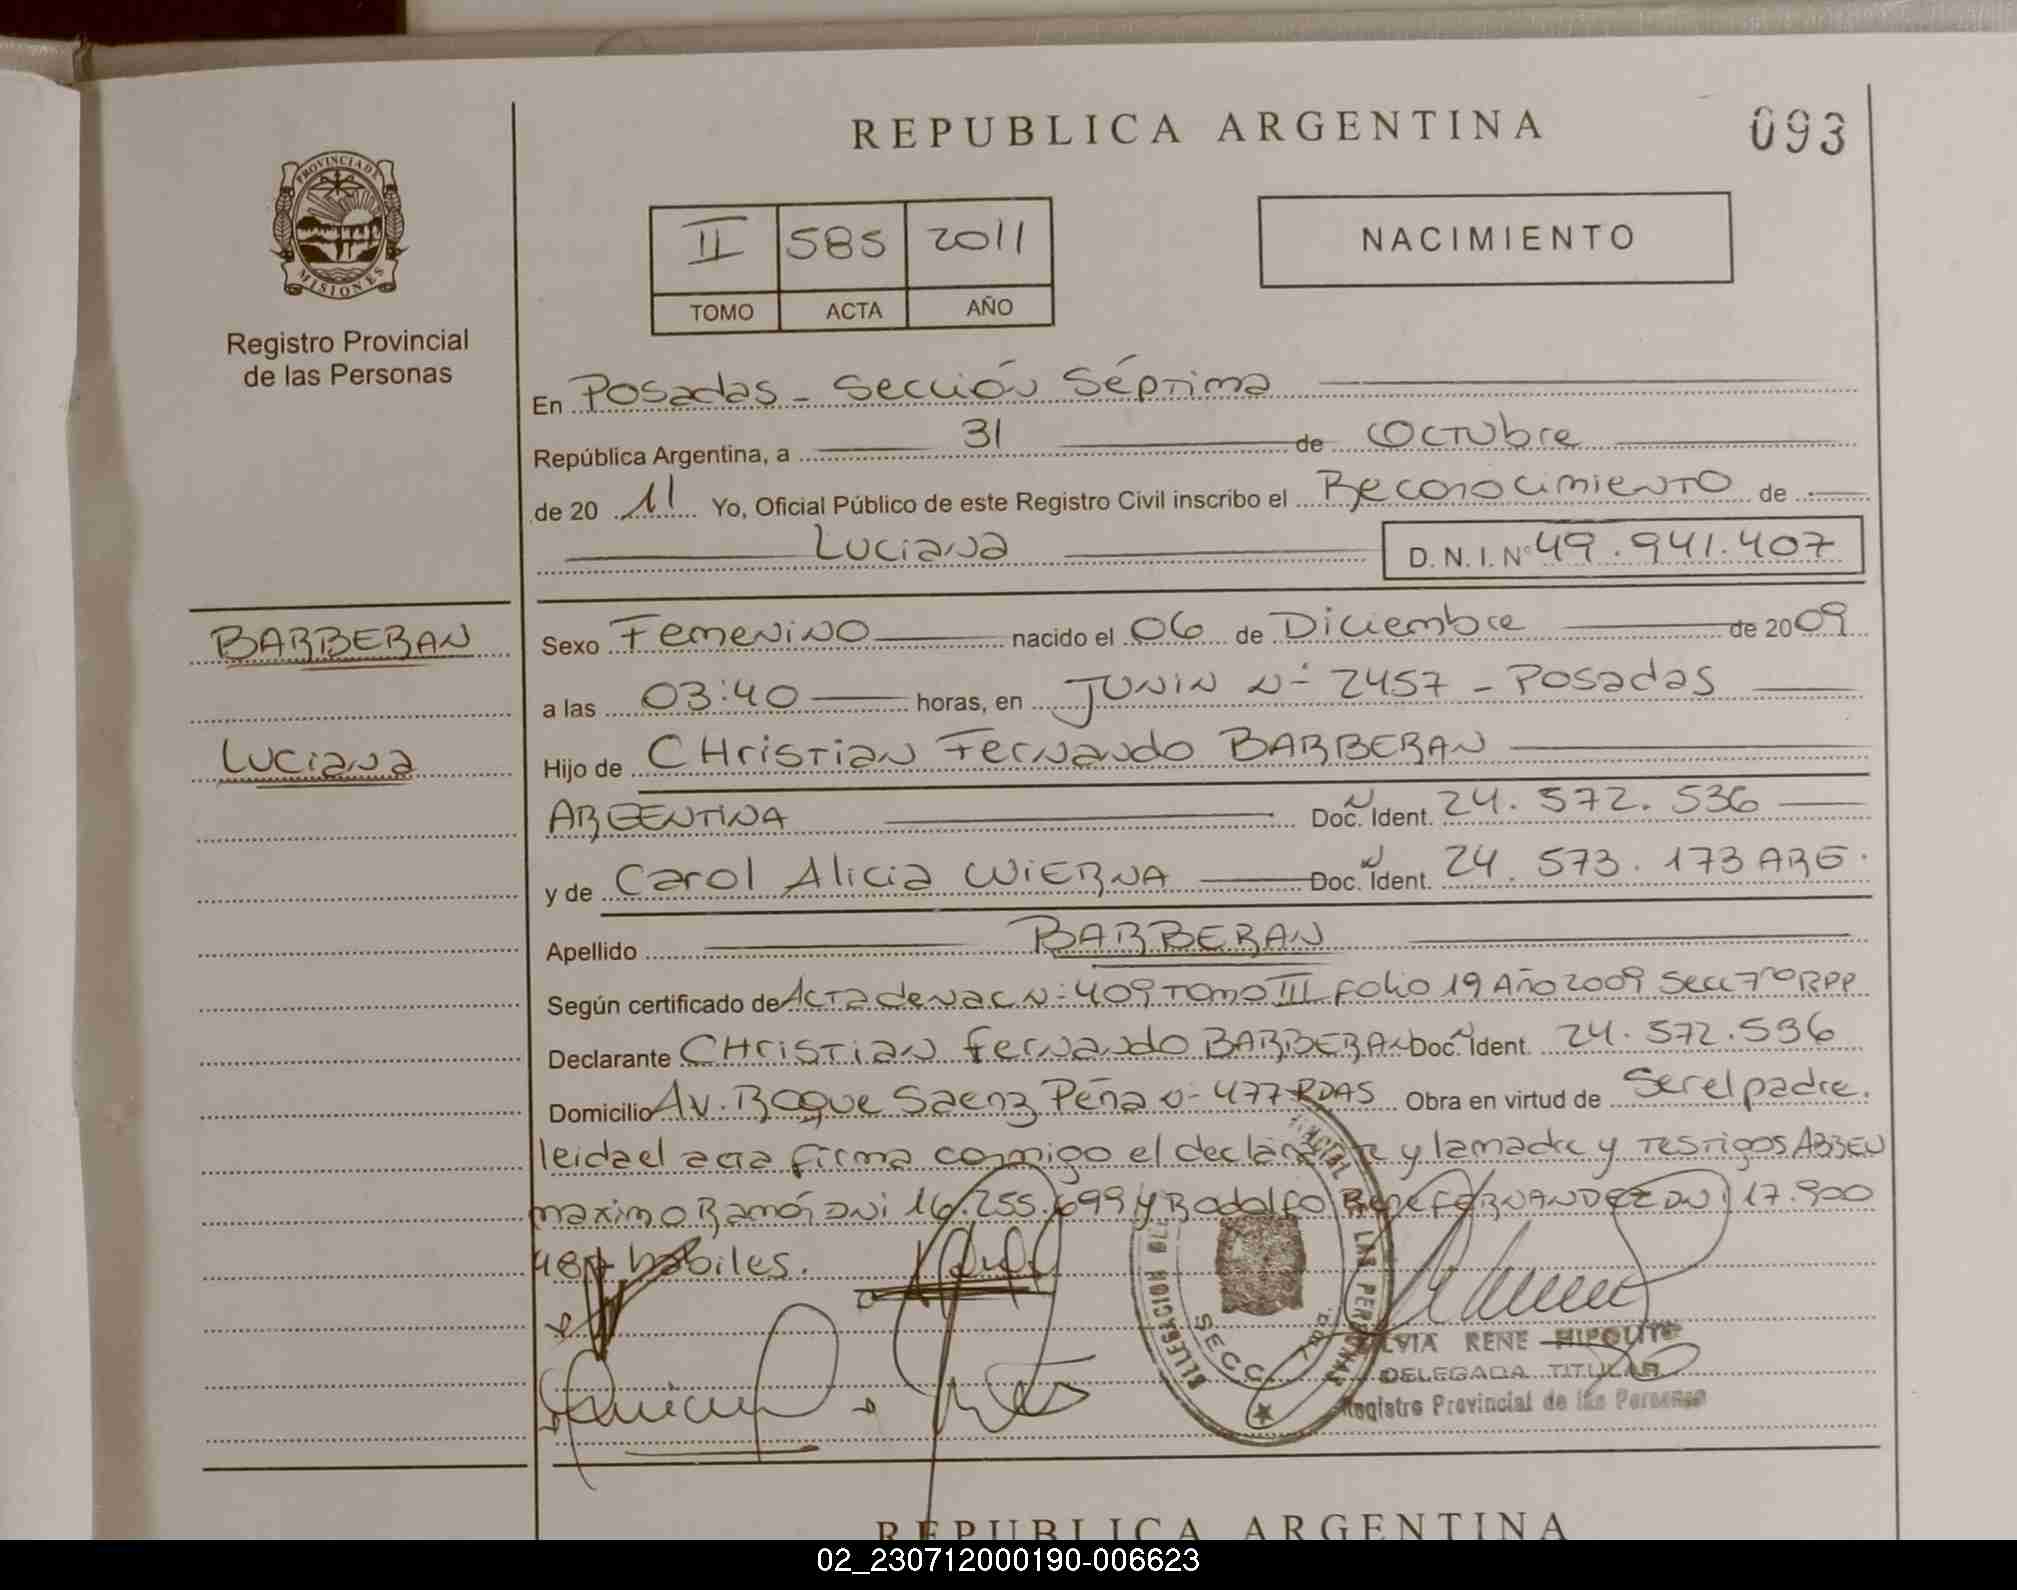 REPUBLICA ARGENTINA
093
PROVINCIA DE
MISIONES
Registro Provincial
de las Personas
II 585 2011
TOMO ACTA AÑO
NACIMIENTO
En Posadas - Sección Séptima
República Argentina, a 31 de Octubre
de 20 11 Yo, Oficial Público de este Registro Civil inscribo el Reconocimiento de
Luciana D.N.I.Nº 49.941.407
BARBERAN
Luciana
Sexo Femenino nacido el 06 de Diciembre de 2009
a las 03:40 horas, en JUNIN Nº 2457 - Posadas
Hijo de CHristian Fernando BARBERAN
ARGENTINA Doc. Ident. 24.572.536
y de Carol Alicia WIERNA Doc. Ident. 24.573.173 ARG.
Apellido BARBERAN
Según certificado de Acta de Nac Nº 409 Tomo III Folio 19 Año 2009 Secc 7º RPP
Declarante CHristian Fernando BARBERAN Doc. Ident. 24.572.536
Domicilio Av. Roque Saenz Peña Nº 477 PDAS Obra en virtud de Ser el padre.
leida el acta firma conmigo el declarante y la madre y testigos ABREU
maximo Ramón DNI 16.255.699 y Rodolfo Rene FERNANDEZ DNI 17.900
487 habiles.
LAS PERSONAS
SECC
RENE HIPOLITO
DELEGADA TITULAR
Registro Provincial de las Personas
REPUBLICA ARGENTINA
02_230712000190-006623